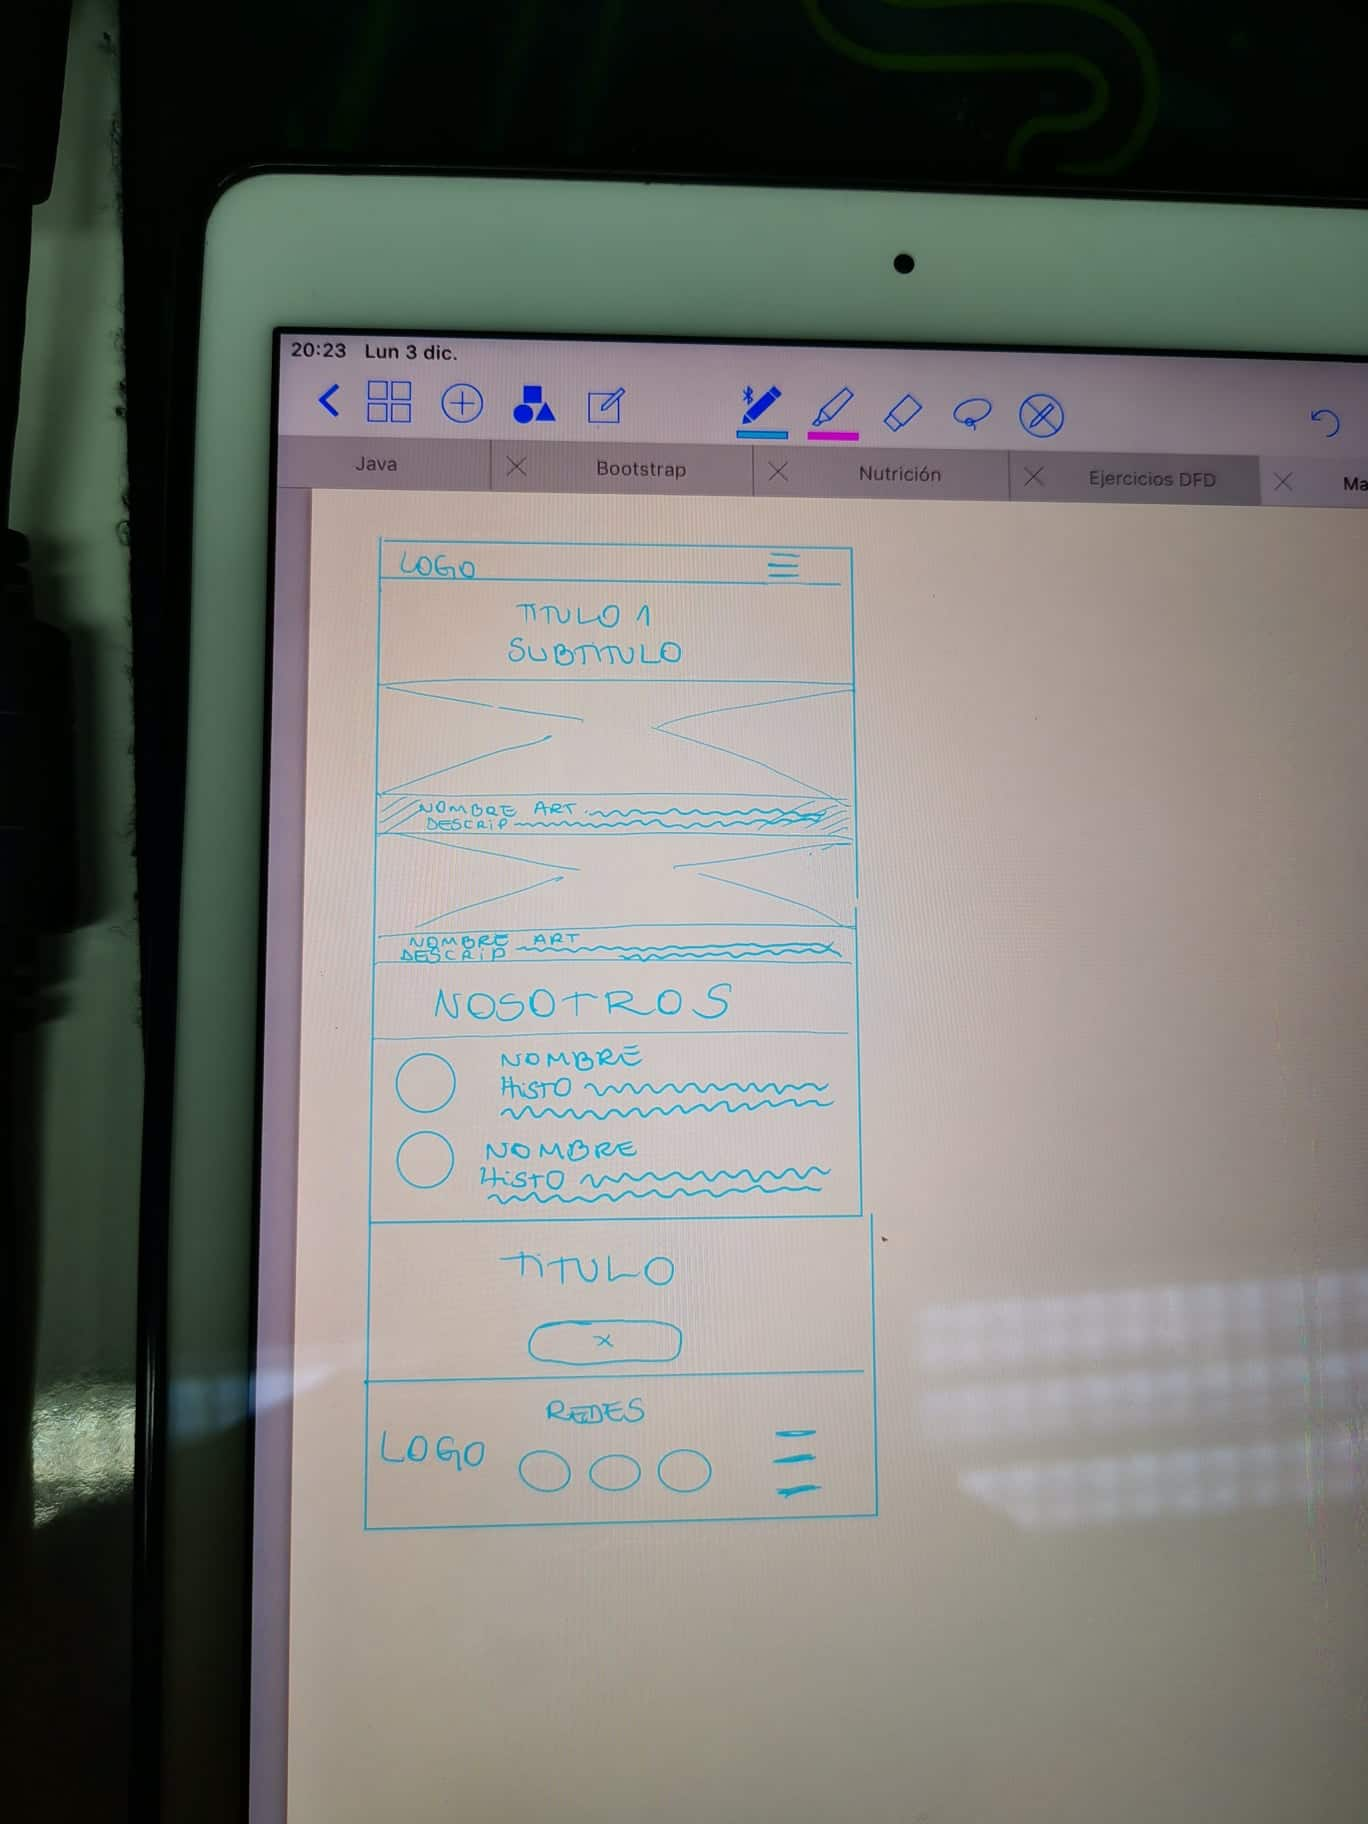 20:23 Lun 3 dic.
Java Bootstrap Nutrición Ejercicios DFD Ma
LOGO
TITULO 1
SUBTITULO
NOMBRE ART
DESCRIP
NOMBRE ART
DESCRIP
NOSOTROS
NOMBRE
HISTO
NOMBRE
HISTO
TITULO
X
REDES
LOGO